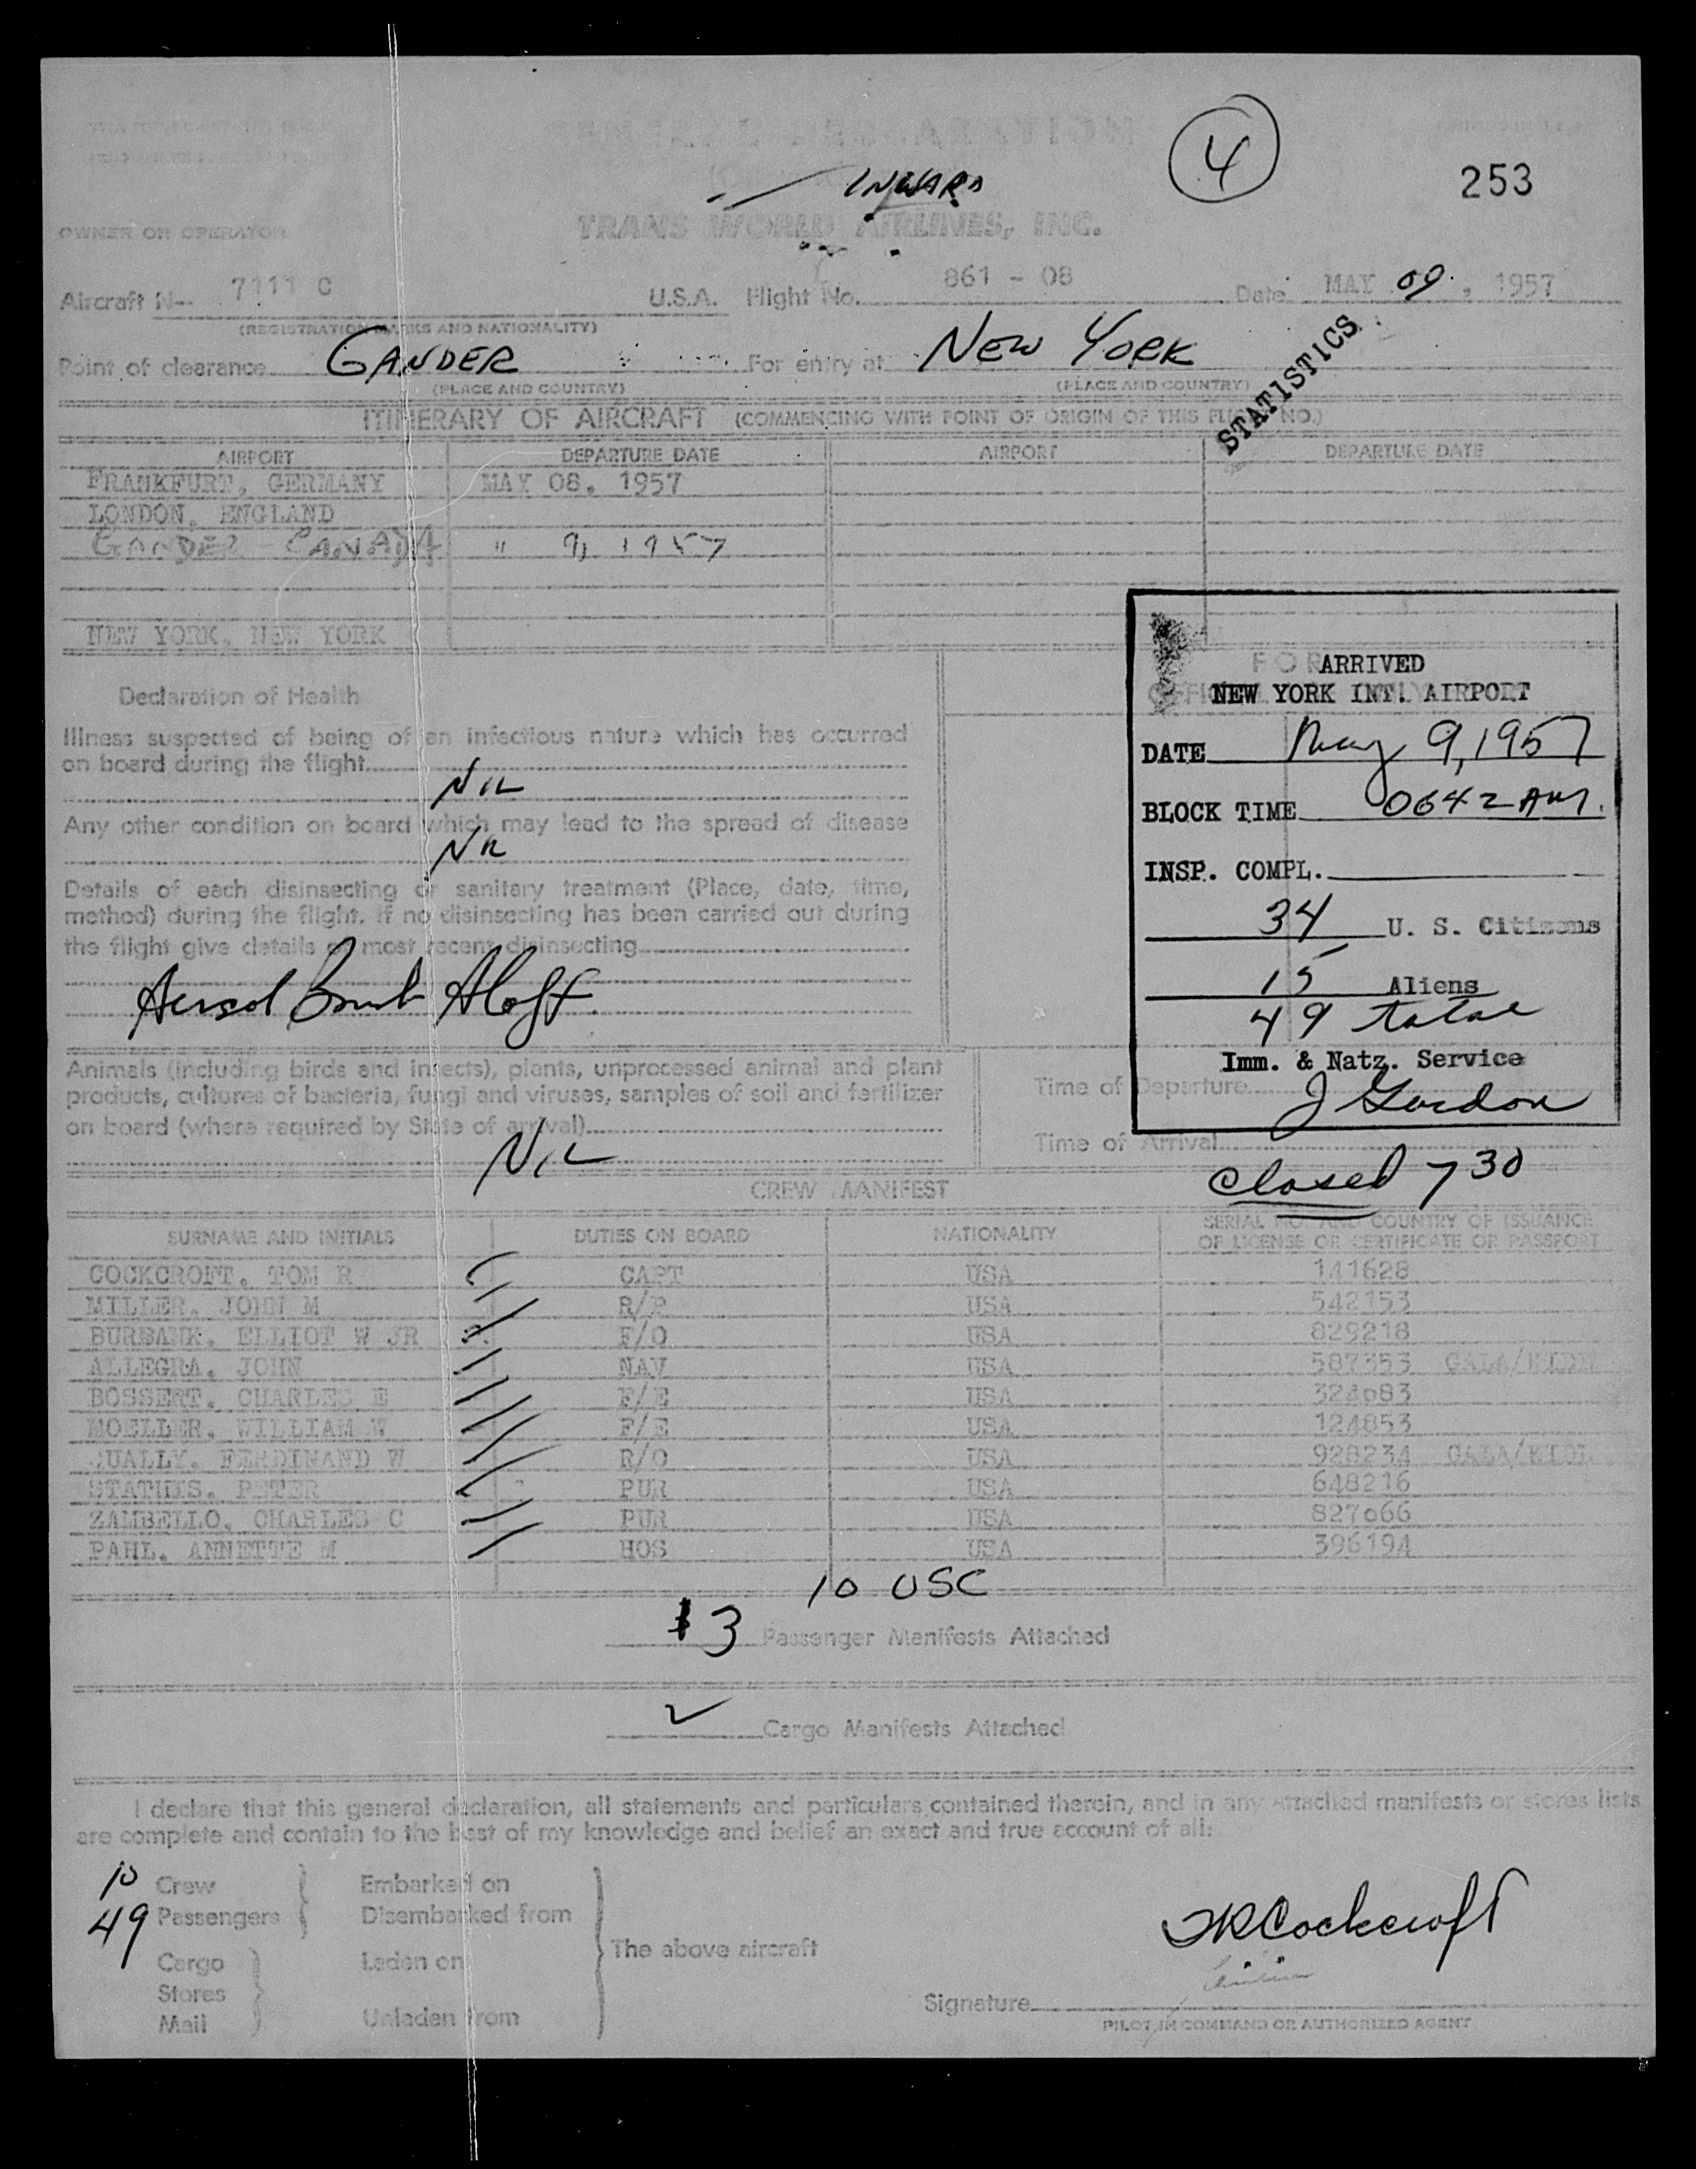 GENERAL DECLARATION
4
253
INWARD
OWNER OR OPERATOR TRANS WORLD AIRLINES, INC.
Aircraft No. 7111 C U.S.A. Flight No. 861 - 08 Date MAY 09, 1957
(REGISTRATION MARKS AND NATIONALITY)
Point of clearance GANDER For entry at NEW YORK
(PLACE AND COUNTRY) (PLACE AND COUNTRY)
STATISTICS
ITINERARY OF AIRCRAFT (COMMENCING WITH POINT OF ORIGIN OF THIS FLIGHT NO.)
AIRPORT DEPARTURE DATE AIRPORT DEPARTURE DATE
FRANKFURT, GERMANY MAY 08, 1957
LONDON, ENGLAND
GANDER - CANADA " 9, 1957
NEW YORK, NEW YORK
Declaration of Health
Illness suspected of being of an infectious nature which has occurred
on board during the flight
NIL
Any other condition on board which may lead to the spread of disease
NIL
Details of each disinsecting or sanitary treatment (Place, date, time,
method) during the flight. If no disinsecting has been carried out during
the flight give details of most recent disinsecting
Aersol Bomb Aloft.
FOR
OFFICIAL
ARRIVED
NEW YORK INT. AIRPORT
DATE May 9, 1957
BLOCK TIME 0642 AM.
INSP. COMPL.
34 U. S. Citizens
15 Aliens
49 total
Imm. & Natz. Service
J Gordon
Animals (including birds and insects), plants, unprocessed animal and plant
products, cultures of bacteria, fungi and viruses, samples of soil and fertilizer
on board (where required by State of arrival)
NIL
Time of Departure
Time of Arrival
Closed 7 30
CREW MANIFEST
SURNAME AND INITIALS DUTIES ON BOARD NATIONALITY SERIAL NO. AND COUNTRY OF ISSUANCE
OF LICENSE OR CERTIFICATE OR PASSPORT
COCKCROFT, TOM R CAPT USA 141628
MILLER, JOHN M R/P USA 542153
BURBANK, ELLIOT W JR F/O USA 829218
ALLEGRA, JOHN NAV USA 587353
BOSSERT, CHARLES E F/E USA 328083
MOELLER, WILLIAM W F/E USA 124853
QUALLY, FERDINAND W R/O USA 928234
STATHIS, PETER PUR USA 648216
ZAMBELLO, CHARLES C PUR USA 827066
PAHL, ANNETTE M HOS USA 396194
10 USC
3 Passenger Manifests Attached
Cargo Manifests Attached
I declare that this general declaration, all statements and particulars contained therein, and in any attached manifests or stores lists
are complete and contain to the best of my knowledge and belief an exact and true account of all:
10 Crew Embarked on
49 Passengers Disembarked from
The above aircraft
Cargo Laden on
Stores
Mail Unladen from
TRCockcroft
Signature
PILOT IN COMMAND OR AUTHORIZED AGENT